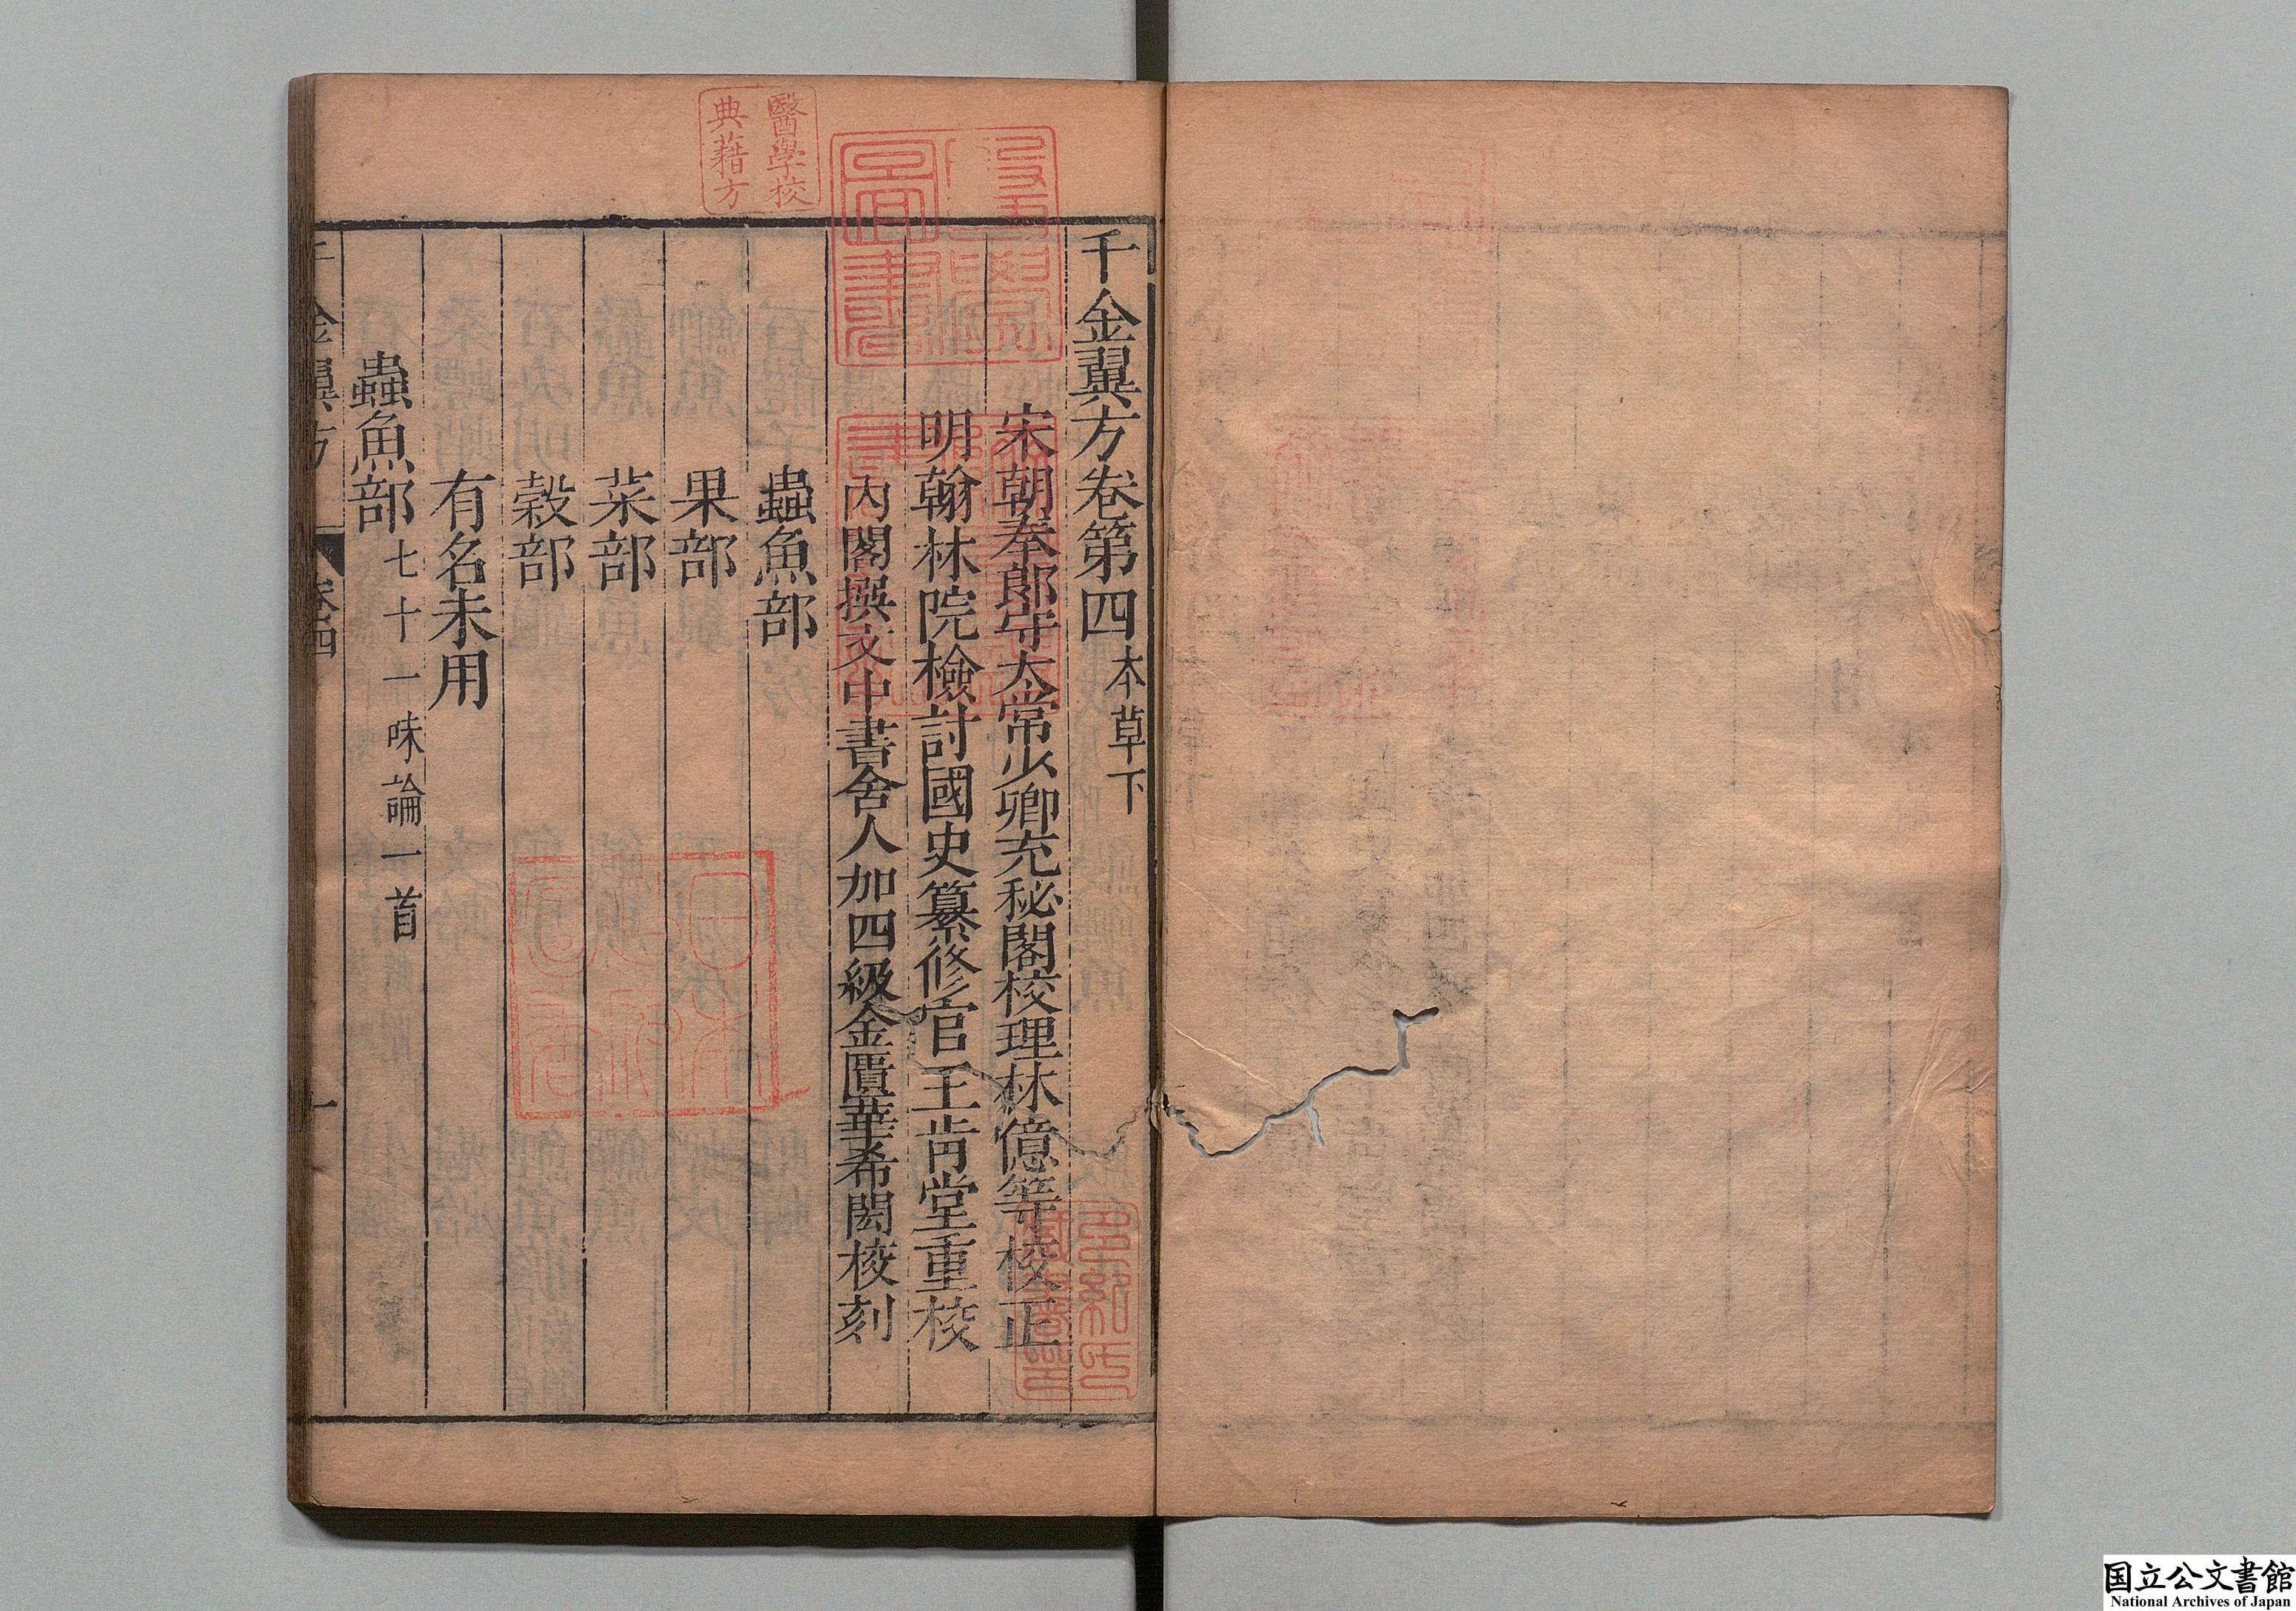 千金翼方卷第四本草下
宋朝奉郎守太常少卿充秘閣校理林億等校正
明翰林院檢討國史纂修官王肯堂重校
內閣撰文中書舍人加四級金匱華希閎校刻
蟲魚部
果部
菜部
穀部
有名未用
蟲魚部七十一味論一首
千金翼方 卷四 一
醫學校
典藉方
国立公文書館
National Archives of Japan